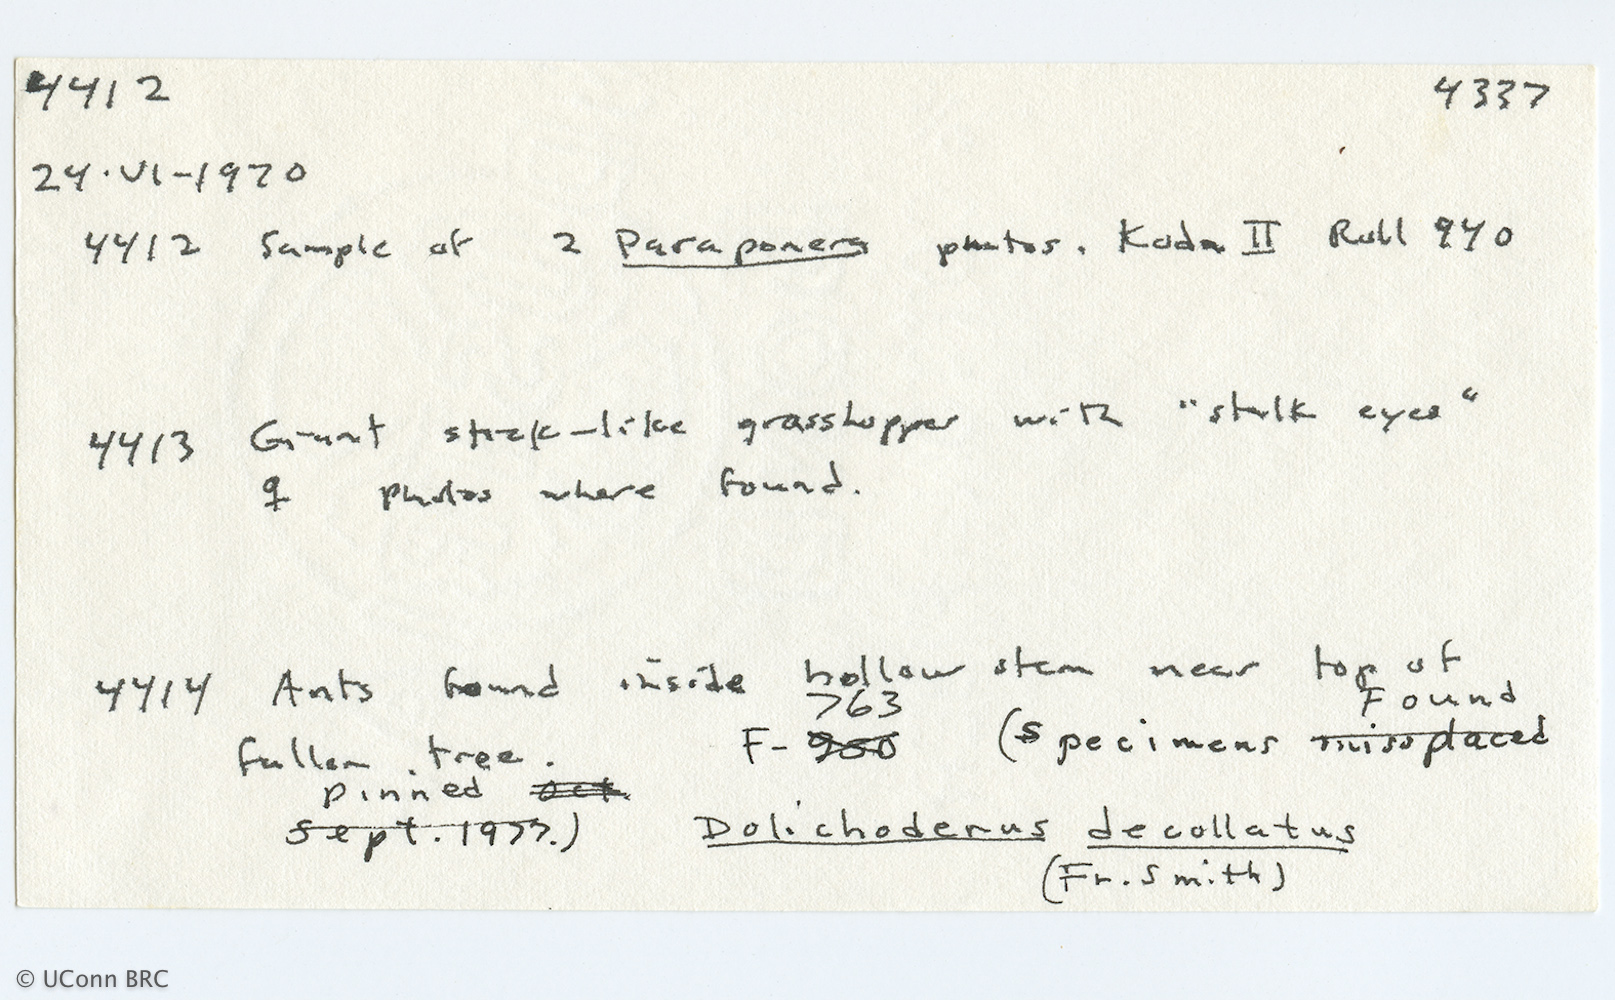 4412 4337
24·VI-1970
4412 Sample of 2 Paraponera photos. Koda II Roll 940
4413 Giant stick-like grasshopper with "stalk eyes"
♀ photos where found.
4414 Ants found inside hollow stem near top of
763 Found
fallen tree. F-900 (specimens missplaced
pinned oct.
sept. 1977.) Dolichoderus decollatus
(Fr. Smith)
© UConn BRC